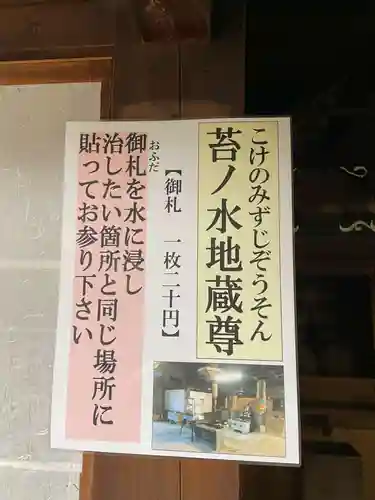 こけのみずじぞうそん
苔ノ水地蔵尊
【御札 一枚二十円】
おふだ
御札を水に浸し
治したい箇所と同じ場所に
貼ってお参り下さい